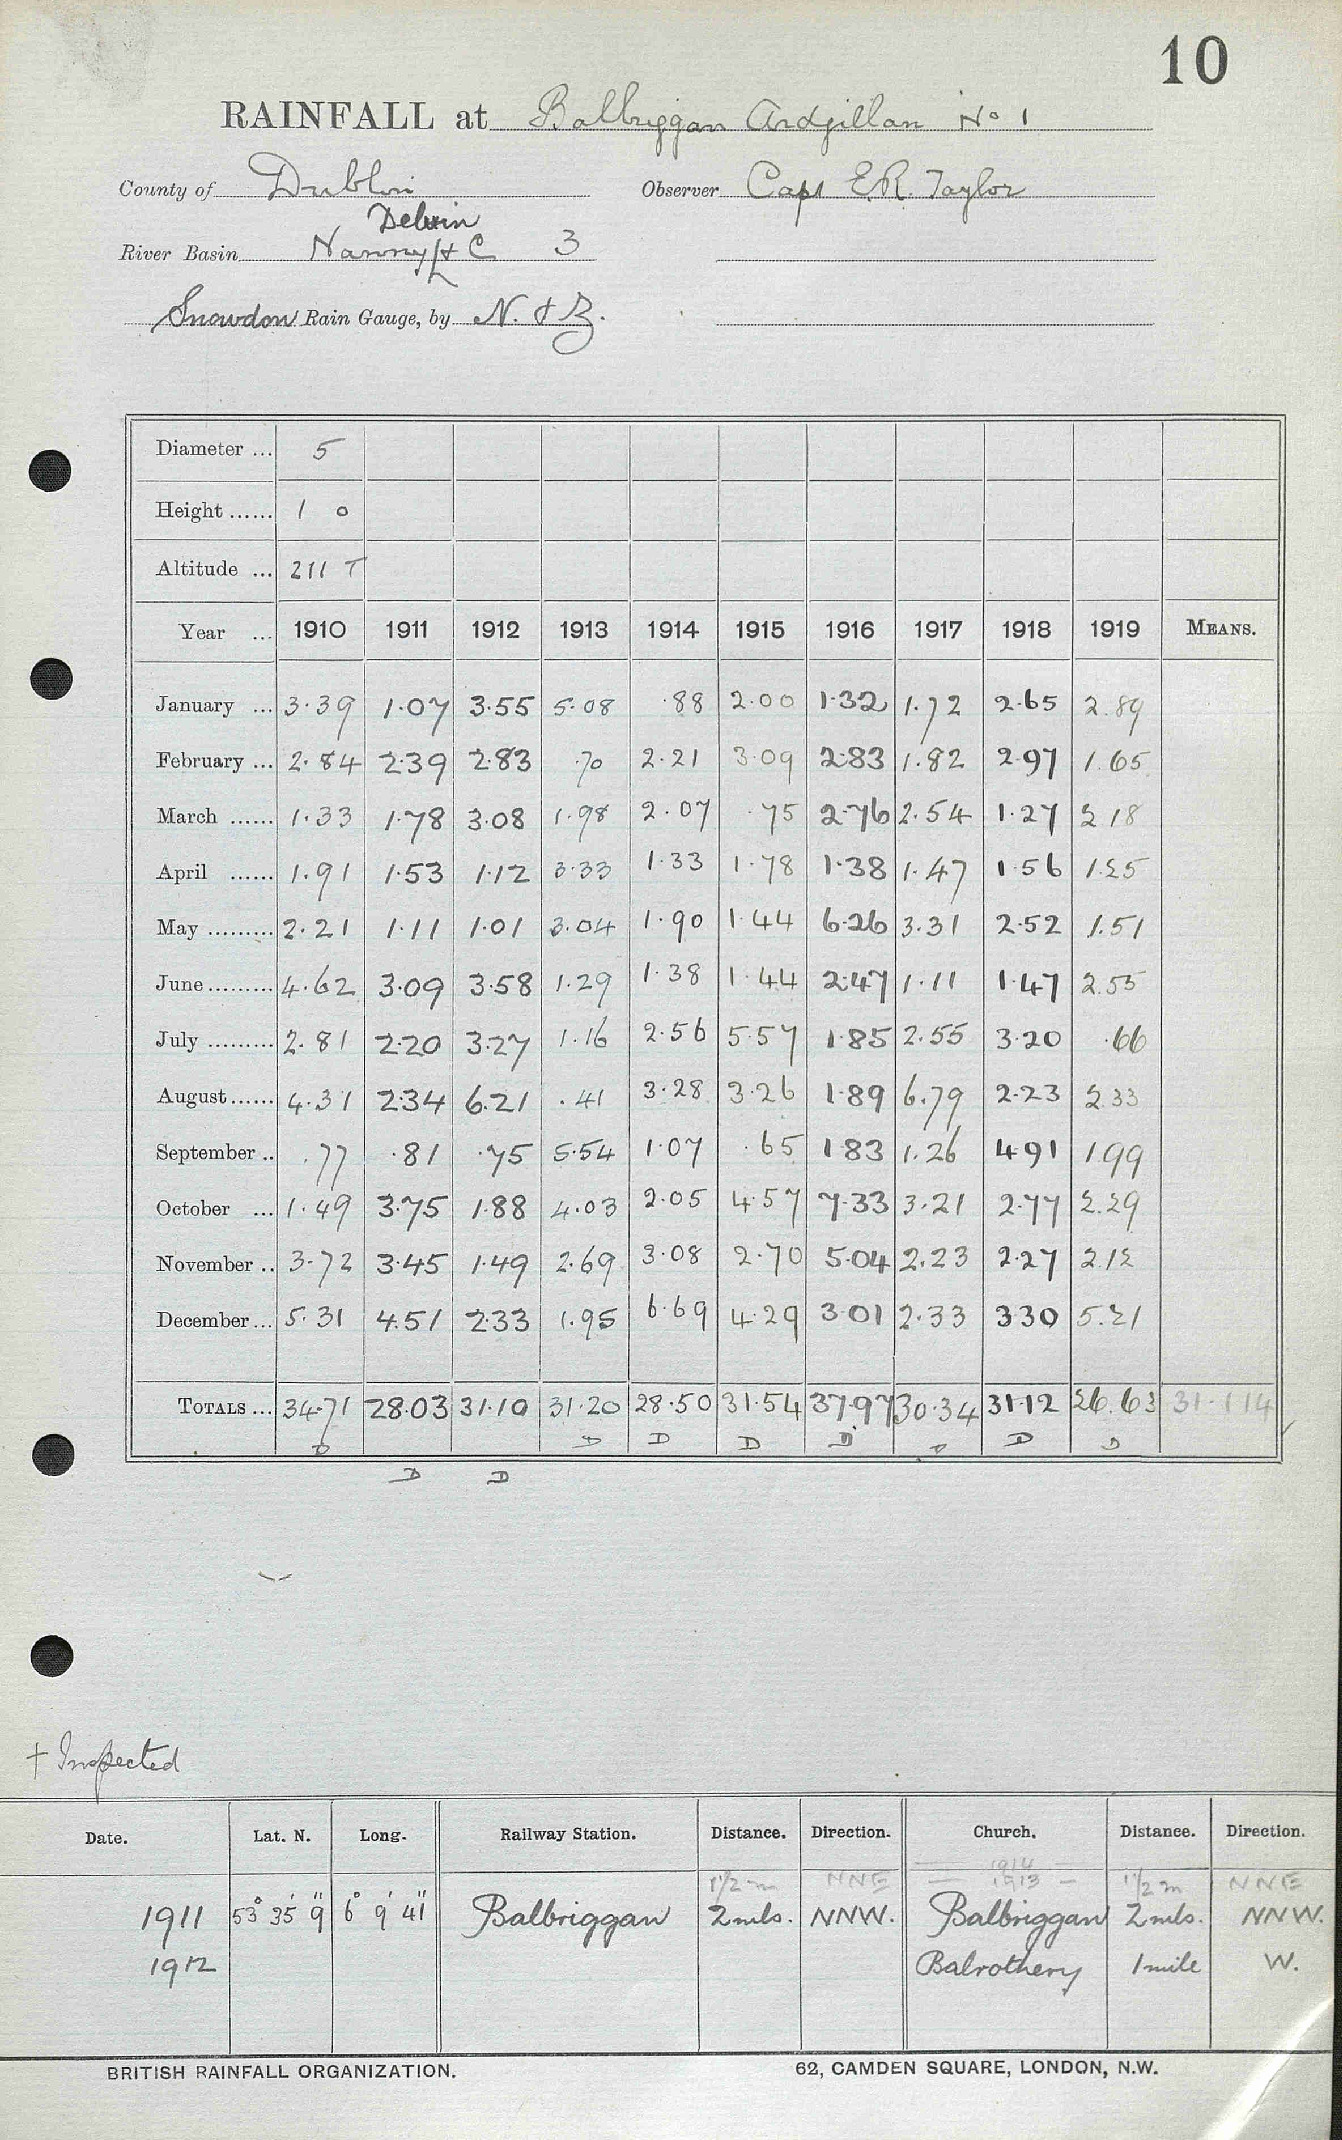 10
RAINFALL at Balbriggan Ardgillan No 1
County of Dublin Observer Capt E.R. Taylor
Delvin
River Basin Nanny & C 3
Snowdon Rain Gauge, by N. & Z.
Diameter ... 5
Height ...... 1 0
Altitude ... 211 T
Year ... 1910 1911 1912 1913 1914 1915 1916 1917 1918 1919 MEANS.
January ... 3.39 1.07 3.55 5.08 .88 2.00 1.32 1.72 2.65 2.89
February ... 2.84 2.39 2.83 .70 2.21 3.09 2.83 1.82 2.97 1.65
March ...... 1.33 1.78 3.08 1.98 2.07 .75 2.76 2.54 1.27 2.18
April ...... 1.91 1.53 1.12 3.33 1.33 1.78 1.38 1.47 1.56 1.25
May ......... 2.21 1.11 1.01 3.04 1.90 1.44 6.26 3.31 2.52 1.51
June ......... 4.62 3.09 3.58 1.29 1.38 1.44 2.47 1.11 1.47 2.55
July ......... 2.81 2.20 3.27 1.16 2.56 5.57 1.85 2.55 3.20 .66
August ...... 4.31 2.34 6.21 .41 3.28 3.26 1.89 6.79 2.23 2.33
September .. .77 .81 .75 5.54 1.07 .65 1.83 1.26 4.91 1.99
October ... 1.49 3.75 1.88 4.03 2.05 4.57 7.33 3.21 2.77 2.29
November .. 3.72 3.45 1.49 2.69 3.08 2.70 5.04 2.23 2.27 2.12
December ... 5.31 4.51 2.33 1.95 6.69 4.29 3.01 2.33 3.30 5.21
TOTALS ... 34.71 28.03 31.10 31.20 28.50 31.54 37.97 30.34 31.12 26.63 31.114
D D D D D D D D
D D
† Inspected
Date. Lat. N. Long. Railway Station. Distance. Direction. Church. Distance. Direction.
— 1914 —
1½ m NNE — 1913 — 1½ m NNE
1911 53° 35' 9" 6° 9' 41" Balbriggan 2 mls. NNW. Balbriggan 2 mls. NNW.
1912 Balrothery 1 mile W.
BRITISH RAINFALL ORGANIZATION. 62, CAMDEN SQUARE, LONDON, N.W.